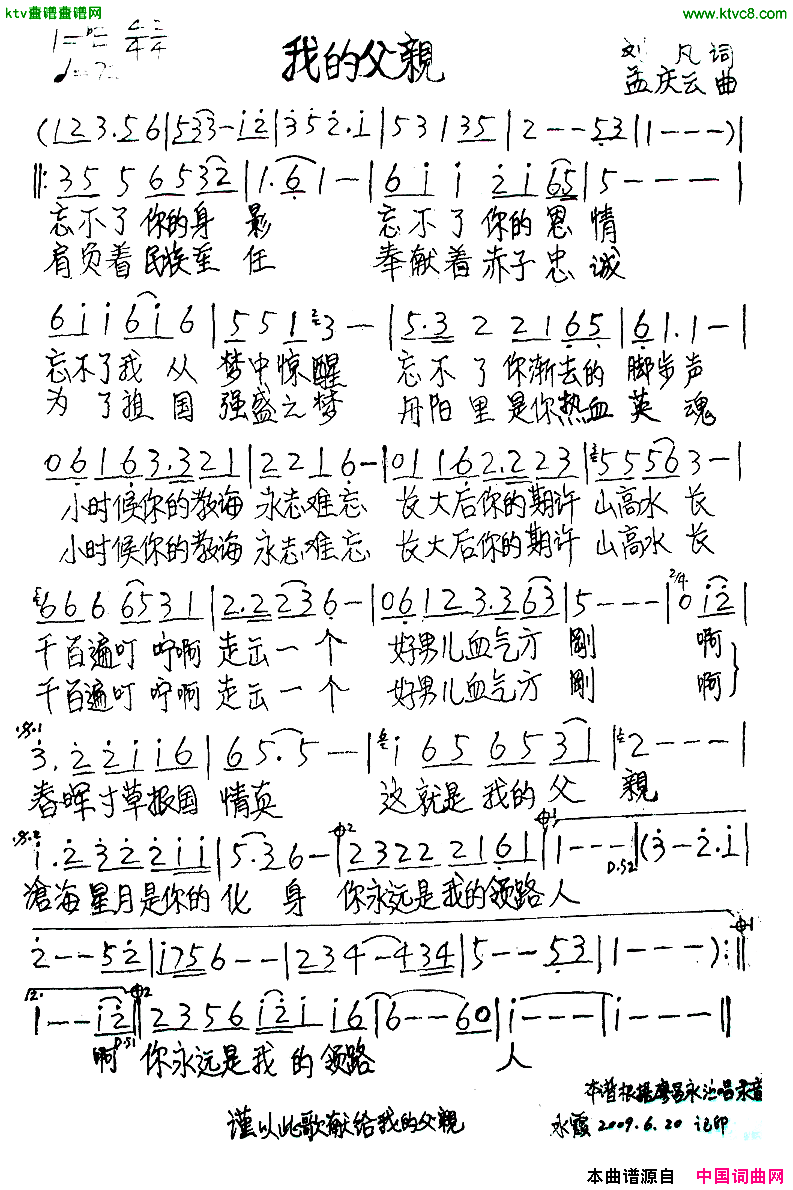 ktv查谱查谱网
www.ktvc8.com
我的父親
刘凡词
孟庆云曲
(1 2 3. 5 6 | 5 3 3 - i 2 | 3 5 2. i | 5 3 1 3 5 | 2 - - 5 3 | 1 - - - ) |
||: 3 5 5 6 5 3 2 | 1. 6 1 - | 6 i i 2 i 6 5 | 5 - - - |
忘不了你的身影 忘不了你的恩情
肩负着民族至任 奉献着赤子忠诚
6 i i 6 i 6 | 5 5 1 3 - | 5. 3 2 2 1 6 5 | 6 1. 1 - |
忘不了我从梦中惊醒 忘不了你渐去的脚步声
为了祖国强盛之梦 丹阳里是你热血英魂
0 6 1 6 3. 3 2 1 | 2 2 1 6 - | 0 1 1 6 2. 2 2 3 | 5 5 5 6 3 - |
小时候你的教诲永志难忘 长大后你的期许山高水长
小时候你的教诲永志难忘 长大后你的期许山高水长
6 6 6 6 5 3 1 | 2. 2 2 3 6 - | 0 6 1 2 3. 3 6 3 | 5 - - - | 2/4 0 i 2 |
千百遍叮咛啊走出一个 好男儿血气方刚 啊
千百遍叮咛啊走出一个 好男儿血气方刚 啊
3. 2 2 i i 6 | 6 5. 5 - | i 6 5 6 5 3 1 | 2 - - - |
春晖寸草报国情真 这就是我的父親
i. 2 3 2 2 i i | 5. 3 6 - | 2 3 2 2 2 2 1 6 1 | 1 - - - || D.S2 (3 - 2. i |
滄海星月是你的化身 你永远是我的领路人
2 - - 5 2 | i 7 5 6 - - | 2 3 4 - 4 3 4 | 5 - - 5 3 | 1 - - - ) :||
12. 1 - - i 2 || D.S1 2 3 5 6 i 2 i i 6 | 6 - - 6 0 | i - - - | i - - - ||
啊 你永远是我的领路 人
谨以此歌献给我的父親
本谱根据廖昌永演唱录音
永霞 2009.6.20 记印
本曲谱源自 中国词曲网